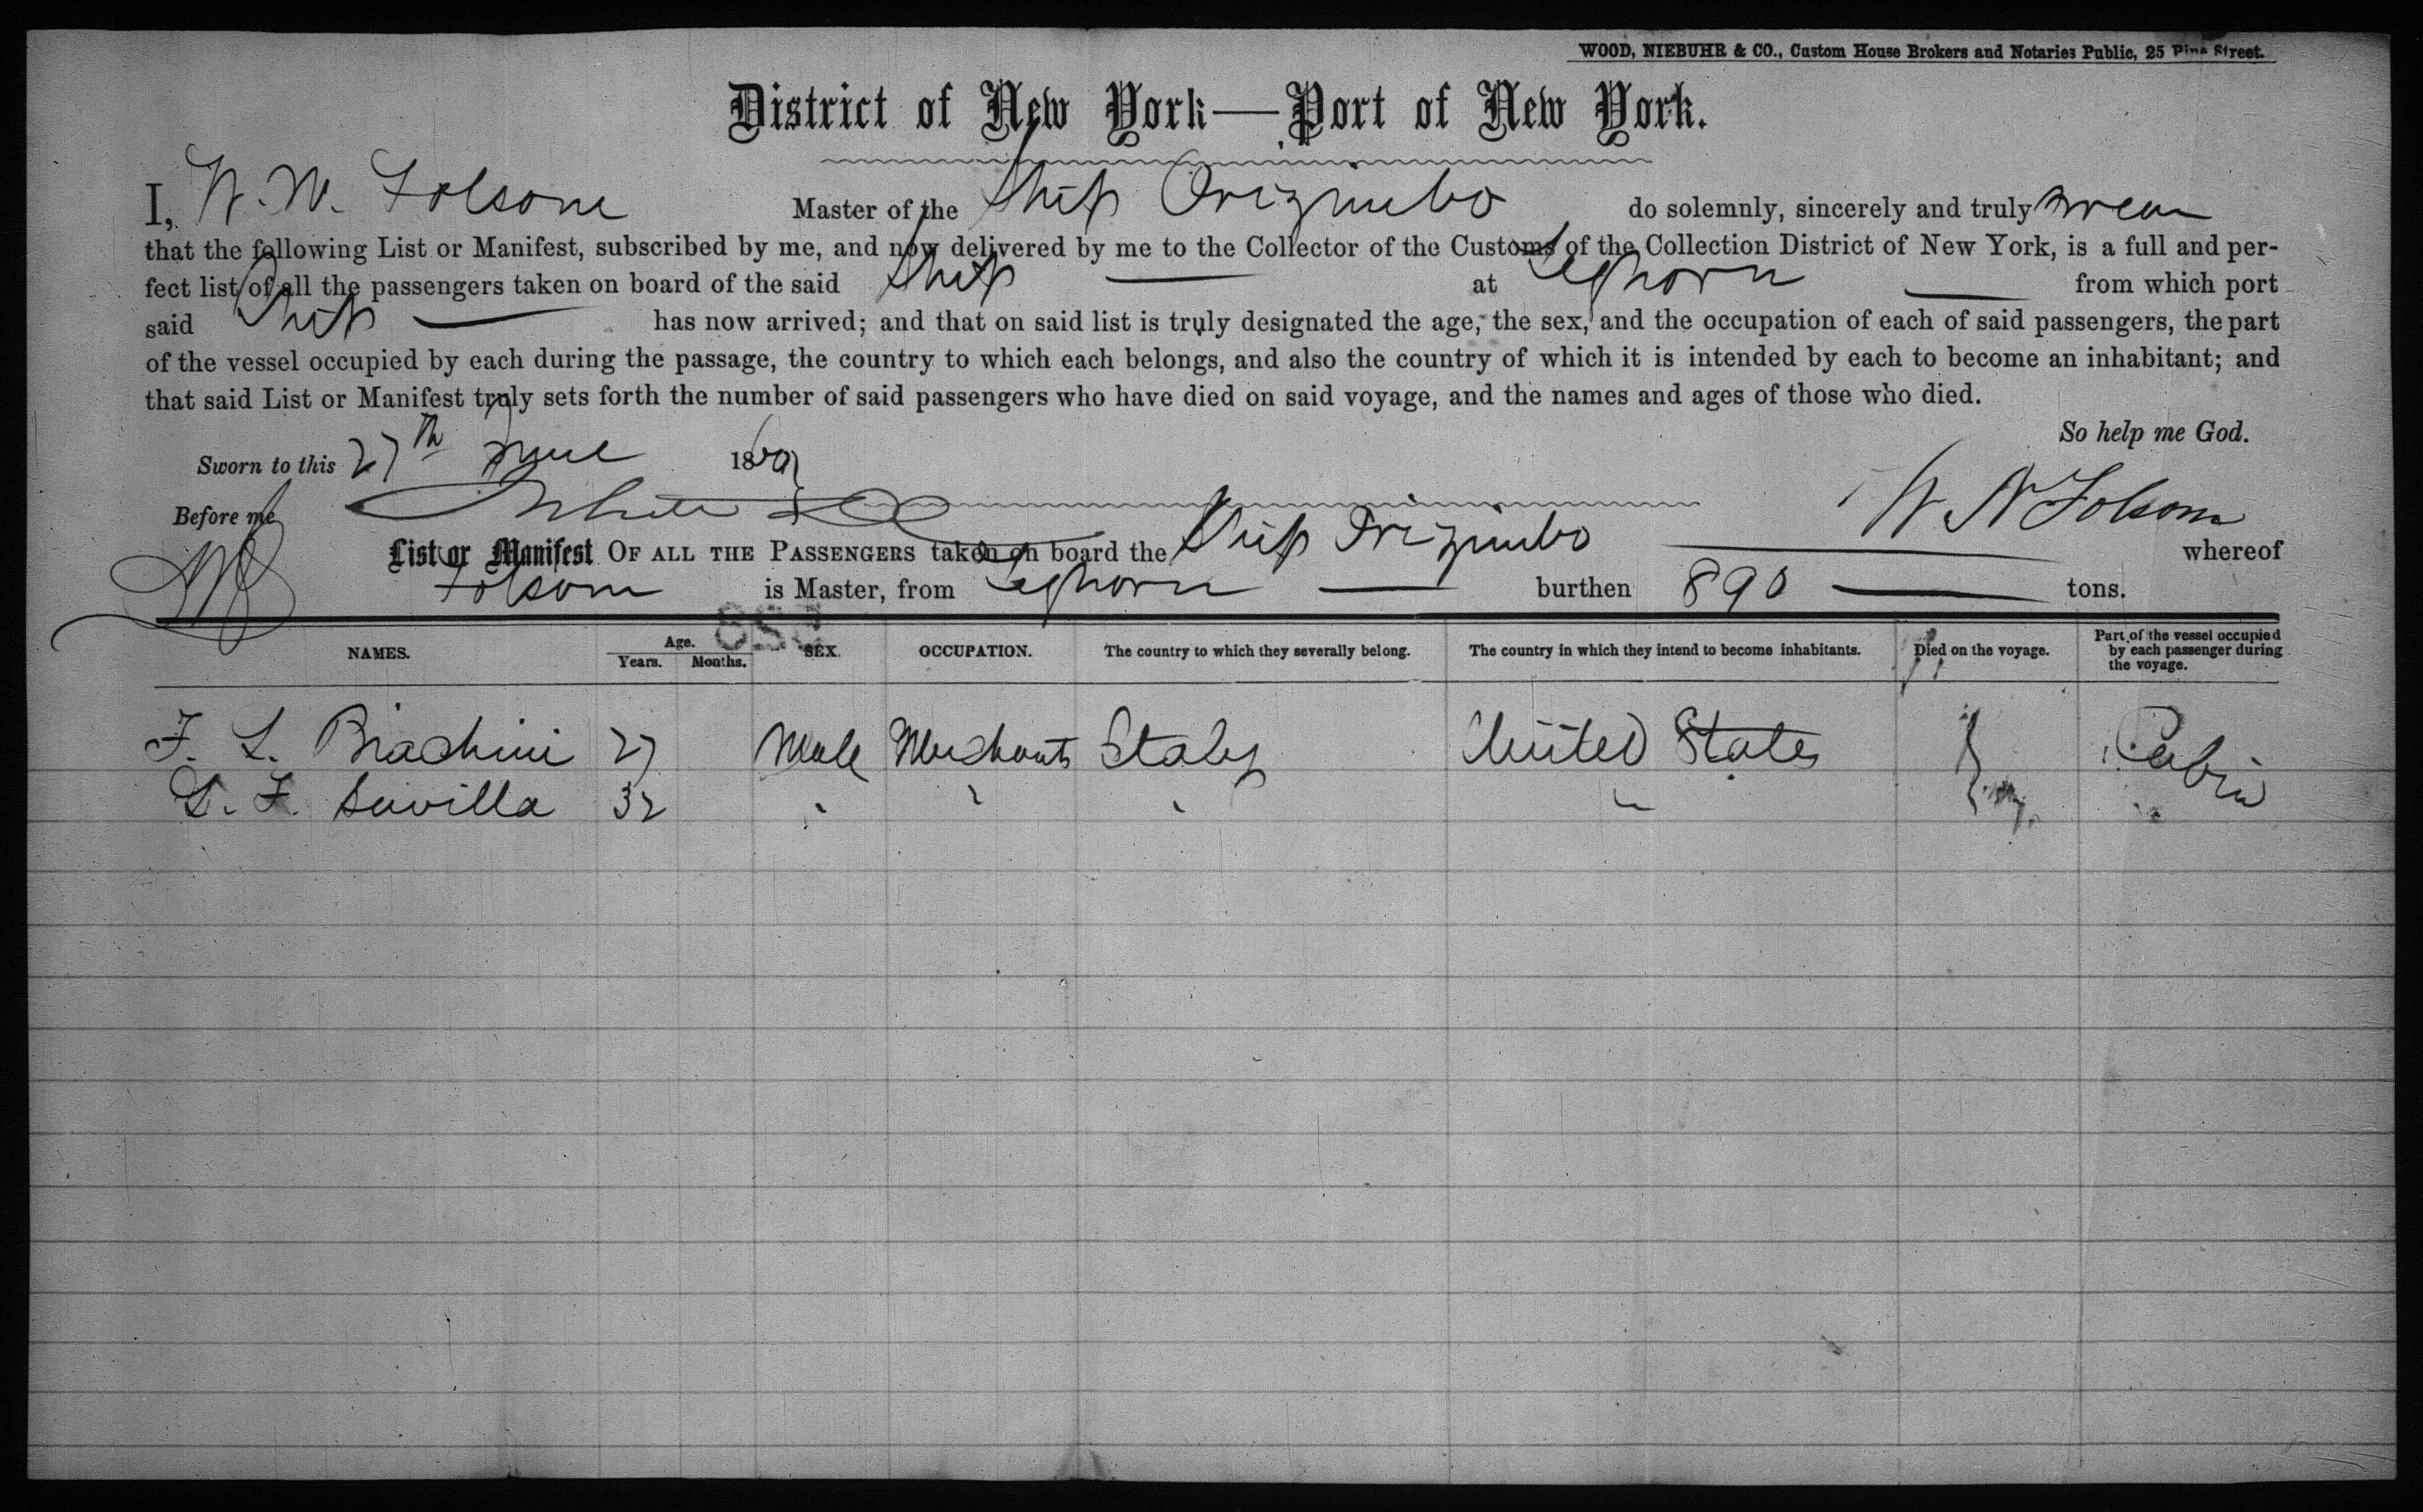 WOOD, NIEBUHR & CO., Custom House Brokers and Notaries Public, 25 Pine Street.
District of New York—Port of New York.
I, W. W. Folsom Master of the Ship Orizimbo do solemnly, sincerely and truly swear
that the following List or Manifest, subscribed by me, and now delivered by me to the Collector of the Customs of the Collection District of New York, is a full and per-
fect list of all the passengers taken on board of the said Ship at Leghorn from which port
said Ship has now arrived; and that on said list is truly designated the age, the sex, and the occupation of each of said passengers, the part
of the vessel occupied by each during the passage, the country to which each belongs, and also the country of which it is intended by each to become an inhabitant; and
that said List or Manifest truly sets forth the number of said passengers who have died on said voyage, and the names and ages of those who died.
So help me God.
Sworn to this 27th June 1869
Before me W N Folsom
List or Manifest OF ALL THE PASSENGERS taken on board the Ship Orizimbo whereof
Folsom is Master, from Leghorn burthen 890 tons.
NAMES. Age. Years. Months. SEX. OCCUPATION. The country to which they severally belong. The country in which they intend to become inhabitants. Died on the voyage. Part of the vessel occupied by each passenger during the voyage.
F. L. Biachini 27 Male Merchants Italy United States Cabin
L. F. Savilla 32 " " " "